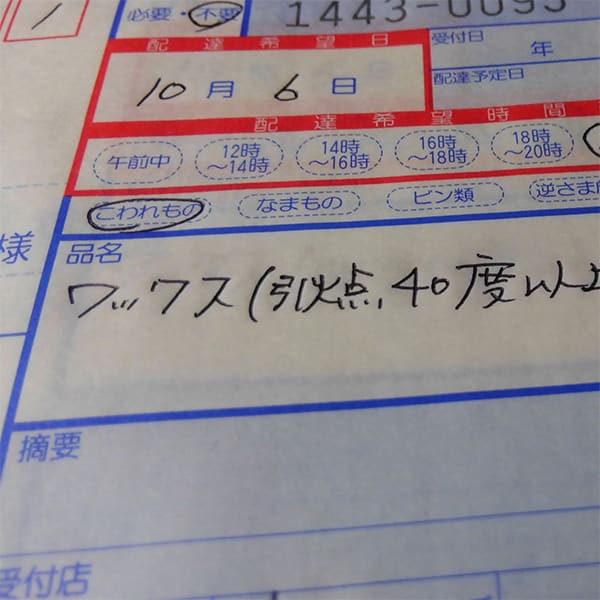 必要・不要
1443-0095
配達希望日
受付日
年
10月6日
配達予定日
配達希望時間
午前中
12時～14時
14時～16時
16時～18時
18時～20時
こわれもの
なまもの
ビン類
逆さま
様
品名
ワックス(引火点,40度以上
摘要
受付店